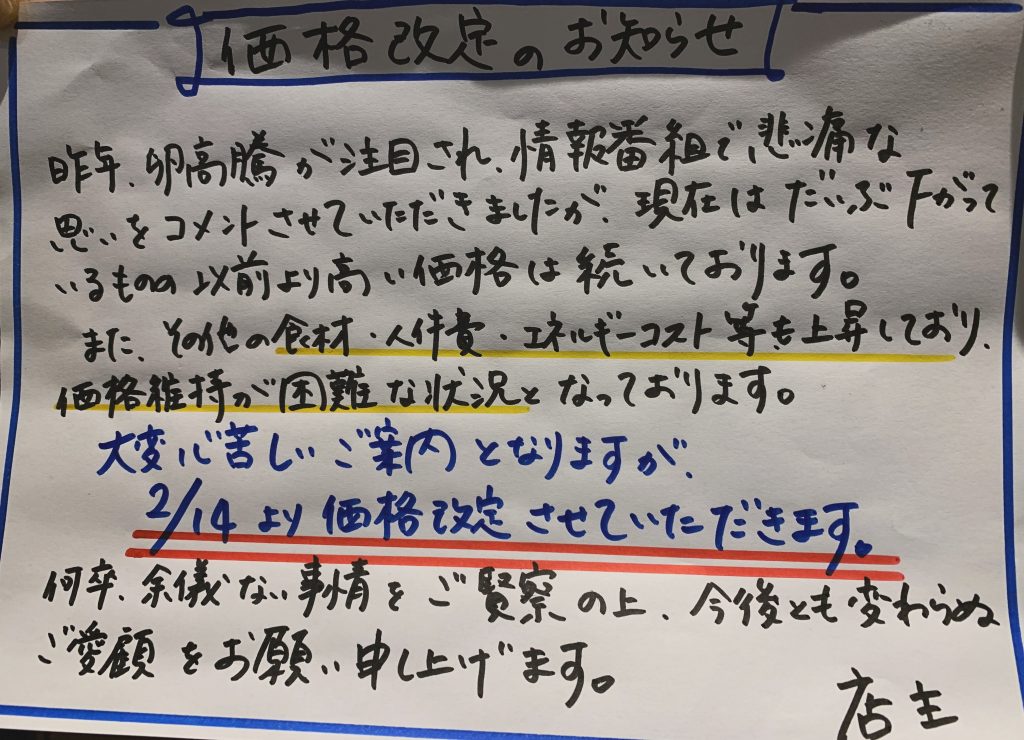 価格改定のお知らせ
昨年、卵高騰が注目され、情報番組で悲痛な
思いをコメントさせていただきましたが、現在はだいぶ下がって
いるものの以前より高い価格は続いております。
また、その他の食材・人件費・エネルギーコスト等も上昇しており、
価格維持が困難な状況となっております。
大変心苦しいご案内となりますが、
2/14より価格改定させていただきます。
何卒、余儀ない事情をご賢察の上、今後とも変わらぬ
ご愛顧をお願い申し上げます。
店主